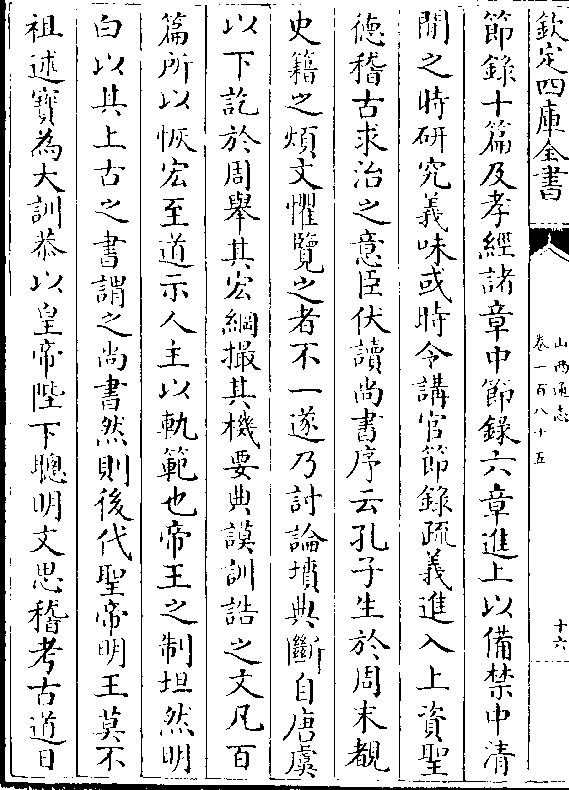 欽定四庫全書
山西通志
卷一百八十五
十六
節錄十篇及孝經諸章中節錄六章進上以備禁中清
閒之時研究義味或時令講官節錄疏義進入上資聖
徳稽古求治之意臣伏讀尚書序云孔子生於周末覩
史籍之煩文懼覽之者不一遂乃討論墳典斷自唐虞
以下訖於周舉其宏綱撮其機要典謨訓誥之文凡百
篇所以恢宏至道示人主以軌範也帝王之制坦然明
白以其上古之書謂之尚書然則後代聖帝明王莫不
祖述寶為大訓恭以皇帝陛下聰明文思稽考古道日